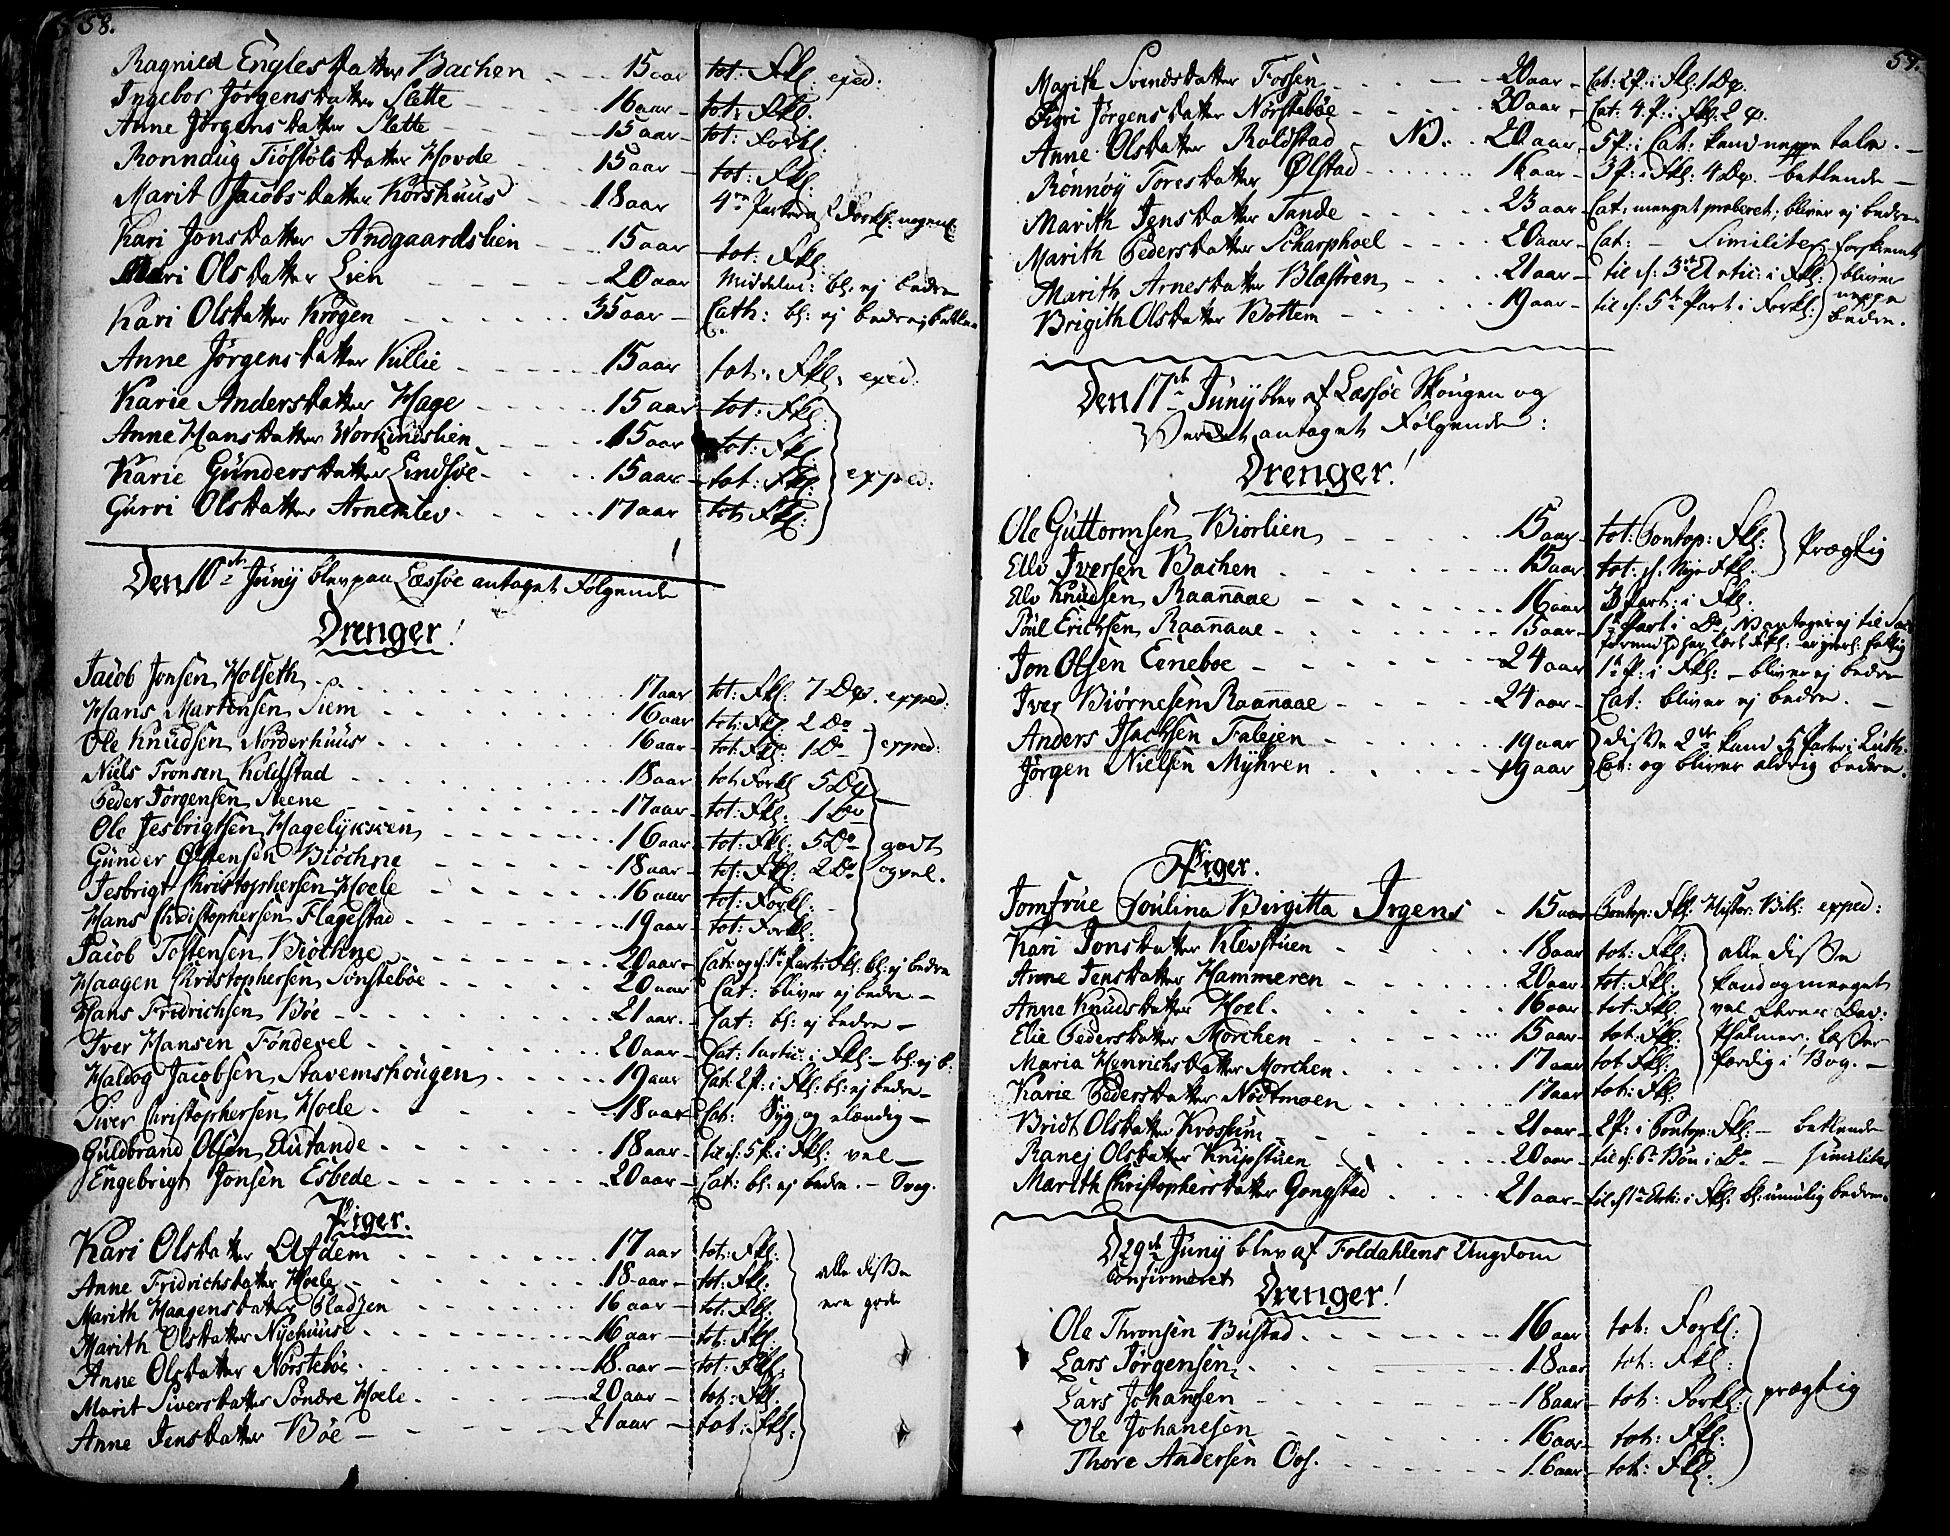 58.
Ragnild Englesdatter Bachen - - - 15 aar tot: Fkl: exped:
Ingebor Jørgensdatter Slette - - - - 16 aar - tot: Fkl:
Anne Jørgensdatter Slette - - - - 15 aar - tot: Forkl:
Ronnaug Tiøstølsdatter Hovde - - - 15 aar - tot: Fkl:
Marit Jacobsdatter Korshuus - - - 18 aar 4re Parter af Forkl:
Kari Jonsdatter Andgaardslien - - - 15 aar - tot: Fkl:
Mari Olsdatter Lien - - - - 20 aar Middelm: bl: ej bedre
Kari Olsdatter Krogen - - - - - 35 aar - Cath: bl: ej bedre
Anne Jørgensdatter Kullie - - - - 15 aar tot: Fkl: exed:
Karie Andersdatter Hage - - - - - 15 aar - tot: Fkl:
Anne Hansdatter Workindslien - - - - 15 aar - tot: Fkl:
Karie Gundersdatter Lindsøe - - - 15 aar - tot: Fkl: exped:
Gurri Olsdatter Arnemlev - - - - - 17 aar tot: Fkl:
Den 10de Junij blev paa Læssøe antaget Følgende!
Drenger!
Jacob Jonsen Holseth - - - 17 aar tot: Fkl: 7 Dp. exped:
Hans Martensen Siem - - - 16 aar tot: Fkl: 2 Do
Ole Knudsen Norderhuus - - - 16 aar - tot: Fkl: 1 Do exped:
Niels Tronsen Koldstad - - - 18 aar tot: Forkl 5 Dp
Peder Jørgensen Steene - - - 17 aar - tot: Fkl: 1 Do
Ole Jesbrigtsen Hagelykken - - - 16 aar - tot: Fkl: 5 Do godt
Gunder Østensen Biøchne - - - 18 aar - tot: Fkl: 2 Do og vel.
Jesbrigt Christophersen Hoele - - - 16 aar tot: Forkl: -
Hans Christophersen Flagestad - - - 19 aar - tot: Forkl:
Jacob Tostensen Biøchne - - - 20 aar - Cat: og s. 1te Part: Fkl: bl: ej bedre
Haagen Christophersen Sønstebøe - - - 20 aar Cat: bliver ej bedre -
Hans Fridrichsen Bøe - - - 21 aar. - Cat: bl: ej bedre -
Iver Hansen Føndevel - - - 20 aar - Cat: 1 artic: i Fkl - bl: ej b:
Haldog Jacobsen Stavemshougen - - - 19 aar Cat: 2 P: i Fkl: bl: ej bedre -
Siver Christophersen Hoele - - - 18 aar - Cat: Syg og elændig -
Guldbrand Olsen Enstande - - - 18 aar - til s. 5 P: i Fkl: vel -
Engebrigt Jonsen Esbede - - - 20 aar - Cat: bl: ej bedre. - Svag.
Piger.
Kari Olsdatter Afdem - - - 17 aar tot: Fkl:
Anne Fridrichsdatter Hoele - - - 18 aar - tot: Fkl: alle disse
Marith Haagensdatter Pladsen - - - 16 aar - tot: Fkl: ere gode
Marith Olsdatter Nyehuus - - - 16 aar - tot: Fkl:
Anne Olsdatter Nørstebøe - - - 18 aar - tot: Fkl:
Marit Siversdatter Søndre Hoele - - - 20 aar - tot: Fkl:
Anne Jensdatter Bøe - - - 21 aar - tot: Fkl:
59.
Marith Svendsdatter Fossen - - - 20 aar - Cat: 2 P: i Fkl: 1 Dp.
Guri Jørgensdatter Nørstebøe - - - 20 aar, Cat: 4 P: i Fkl: 2 p.
Anne Olsdatter Roldstad - NB. - 20 aar, 5 P: i Cat: kand neppe tale. -
Rønnøy Toresdatter Ølstad - - - 16 aar - 3 P: i Fkl: 4 Dp. betlende -
Marith Jensdatter Tande - - - 23 aar - Cat: meeget proberet; bliver ej bedre
Marith Pedersdatter Scharphoel - - - 20 aar - Cat: - Similiter. forskremt
Marith Arnesdatter Blæstren - - - 21 aar - til s. 3die Artic: i Fkl: bliver
Brigith Olsdatter Bottem - - - 19 aar - til s. 5te Part i Forkl: neppe bedre.
Den 17de Junij blev af Læssøe Skougen og
Werket antaget Følgende:
Drenger!
Ole Guttormsen Biorlien - - - 15 aar - tot: Pontop: Fkl: Prægtig
Ellv Iversen Bachen - - - 15 aar tot: s. Nye Fkl:
Elv Knudsen Raanaae - - - 16 aar 3 Part: i Fkl:
Poul Erichsen Raanaae - - - 15 aar - 1te Part i Do:
Jon Olsen Eeneboe - - - 24 aar 1te P: i Fkl: - bliver ej bedre
Iver Biørnesen Raanaae - - - 24 aar - Cat: bliver ej bedre. -
Anders Isachsen Faleien - - - 19 aar disse 2de kand 5 Parter i Luth:
Jørgen Nielsen Myhren - - - 19 aar Cat: og bliver aldrig bedre.
Piger.
Jomfrue Poulina Birgitta Irgens - 15 aar Pontop: Fkl: Histor: Bibl: exped:
Kari Jonsdatter Klevstuen - - - 18 aar tot: Fkl: alle disse
Anne Jensdatter Hammeren - - - 20 aar tot: Fkl: kand og meeget
Anne Knudsdatter Hoel - - - 16 aar - tot: Fkl: vel flerer Dav:
Elie Pedersdatter Morchen - - - 15 aar - tot: Fkl: Psalmer. læser
Maria Henrichsdatter Morchen - - - 17 aar tot Fkl: færdig i Bog. -
Karie Pedersdatter Nodtmoen - - - 17 aar tot: Fkl:
Bridt Olsdatter Krossum - - - 21 aar - 2 P: i Pontop: Fkl: - betlende
Ranej Olsdatter Knipstuen - - - 20 aar - til s: 6te Bøn i Do - similiter
Marith Christophersdatter Gongstad - - - 21 aar - til s 1te Arti: i Fkl: bl: umulig bedre.
D 29de Junij blev af Foldahlens Ungdom
Confirmeret
Drenger!
Ole Thronsen Bustad - - - 16 aar tot: Forkl:
Lars Jørgensen - - - 18 aar tot: Fkl:
Lars Johansen - - - 18 aar - tot: Forkl: prægtig
Ole Johanesen - - - 16 aar - tot: Fkl:
Thore Andersen Oos. - - - 16 aar - tot: Fkl: